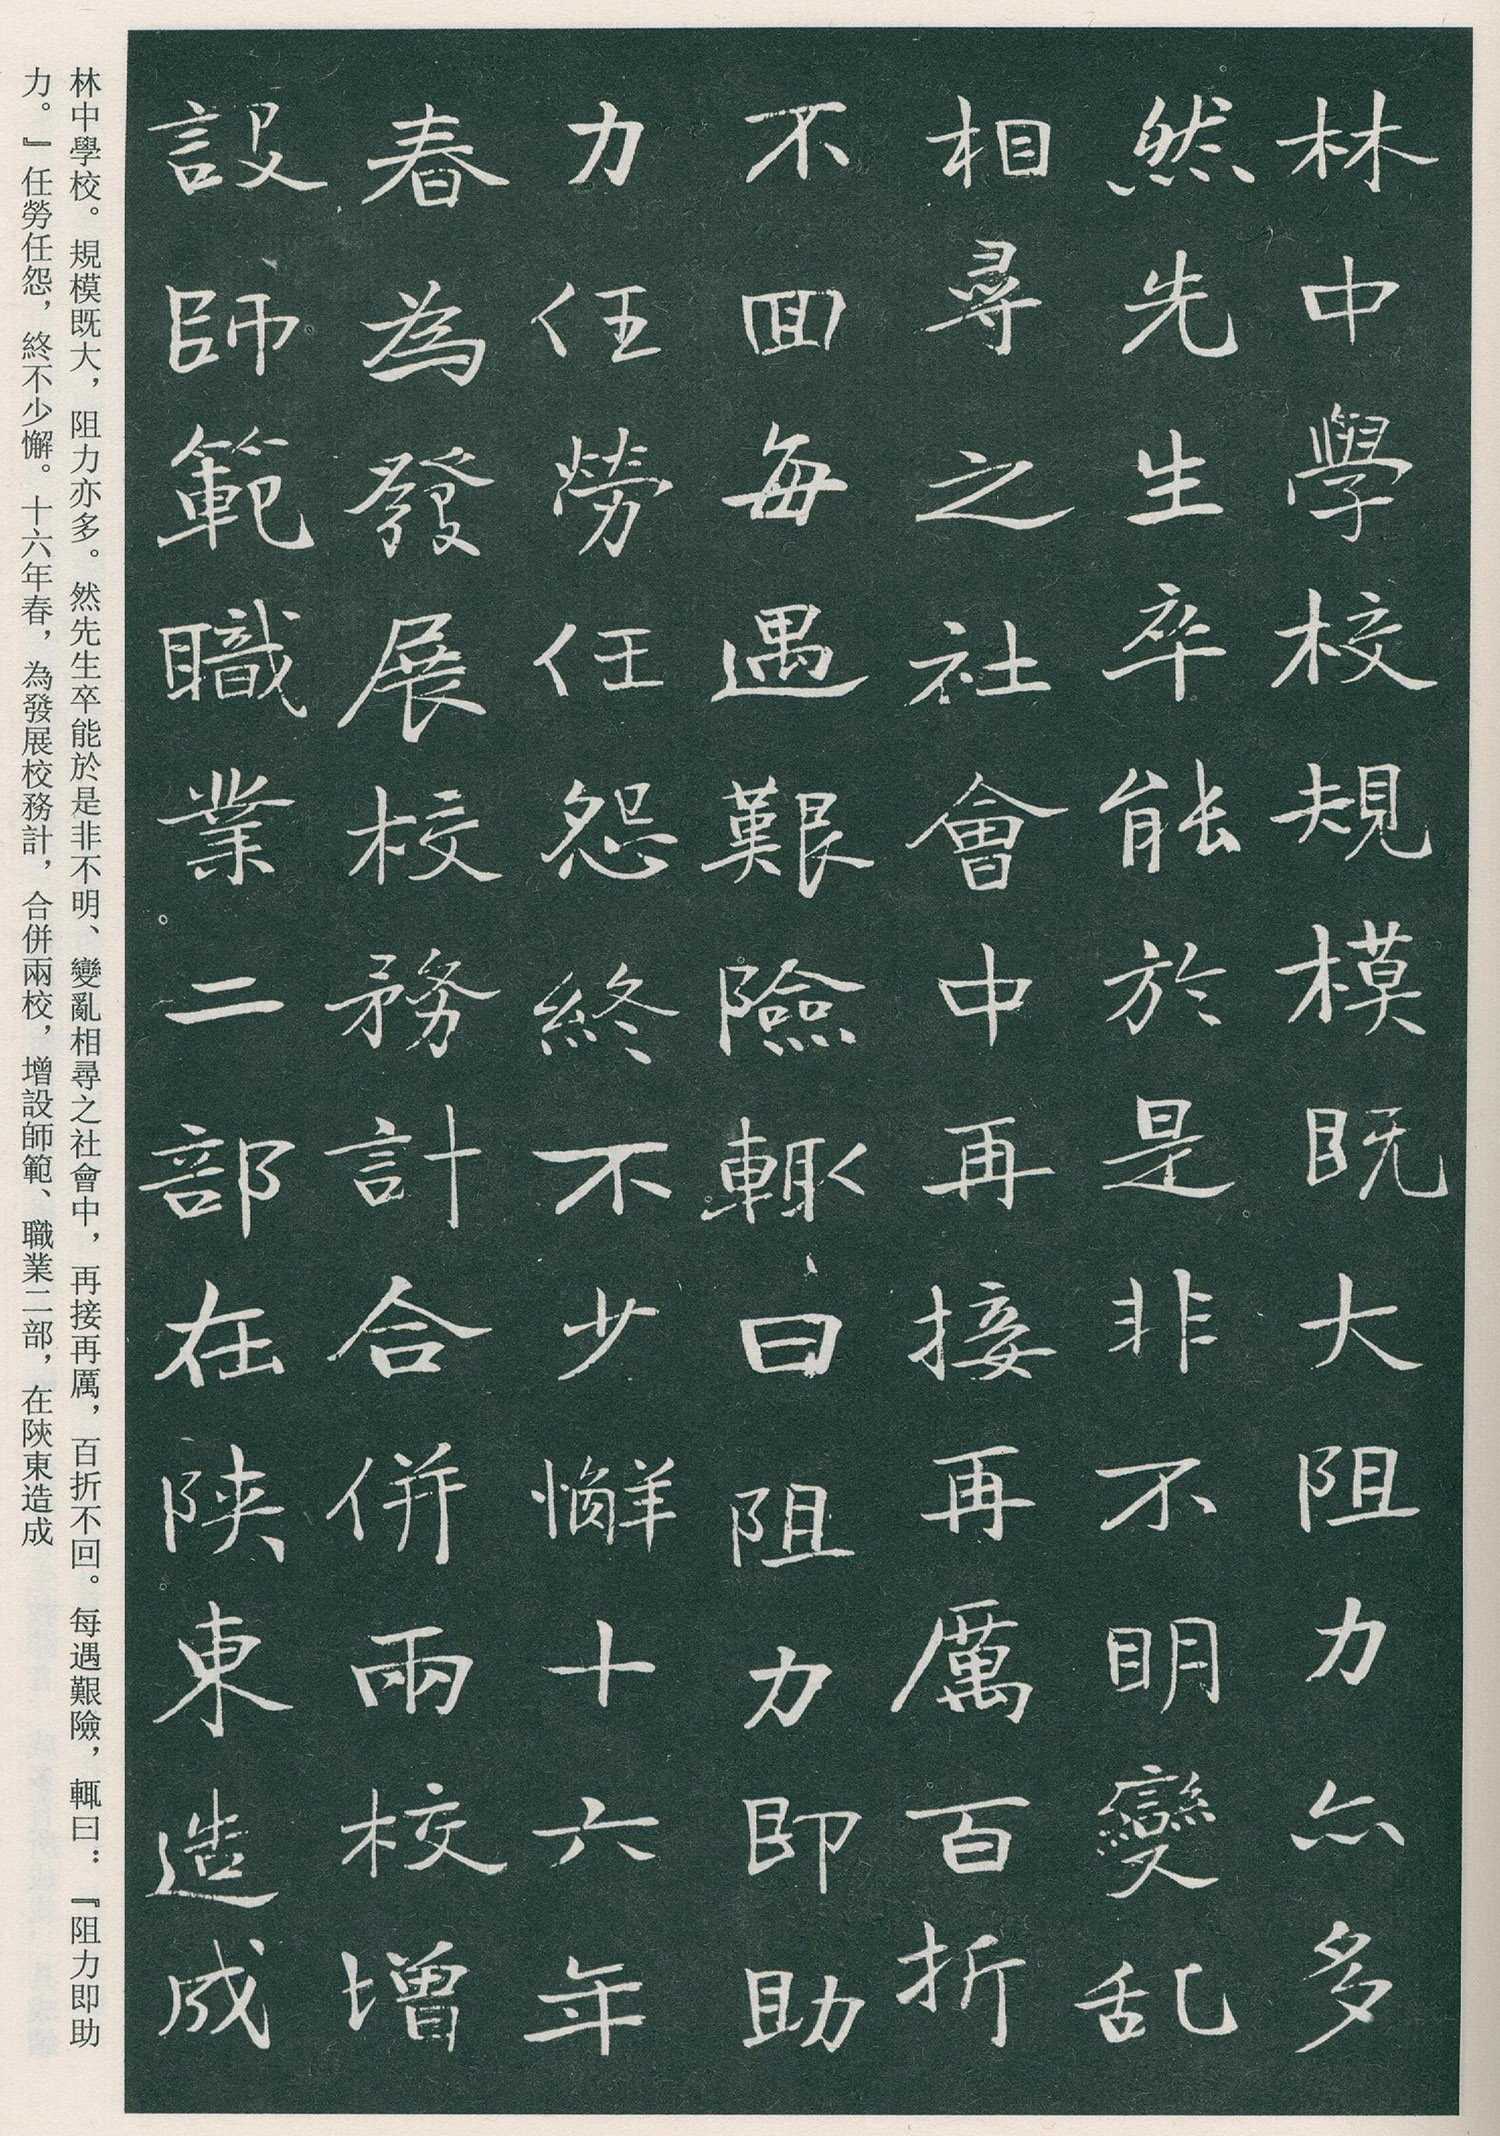 林中學校規模既大阻力亦多
然先生卒能於是非不明變乱
相尋之社會中再接再厲百折
不回每遇艱險輒曰阻力即助
力任勞任怨終不少懈十六年
春為發展校務計合併兩校增
設師範職業二部在陝東造成
林中學校。規模既大，阻力亦多。然先生卒能於是非不明、變亂相尋之社會中，再接再厲，百折不回。每遇艱險，輒曰：『阻力即助
力。』任勞任怨，終不少懈。十六年春，為發展校務計，合併兩校，增設師範、職業二部，在陝東造成